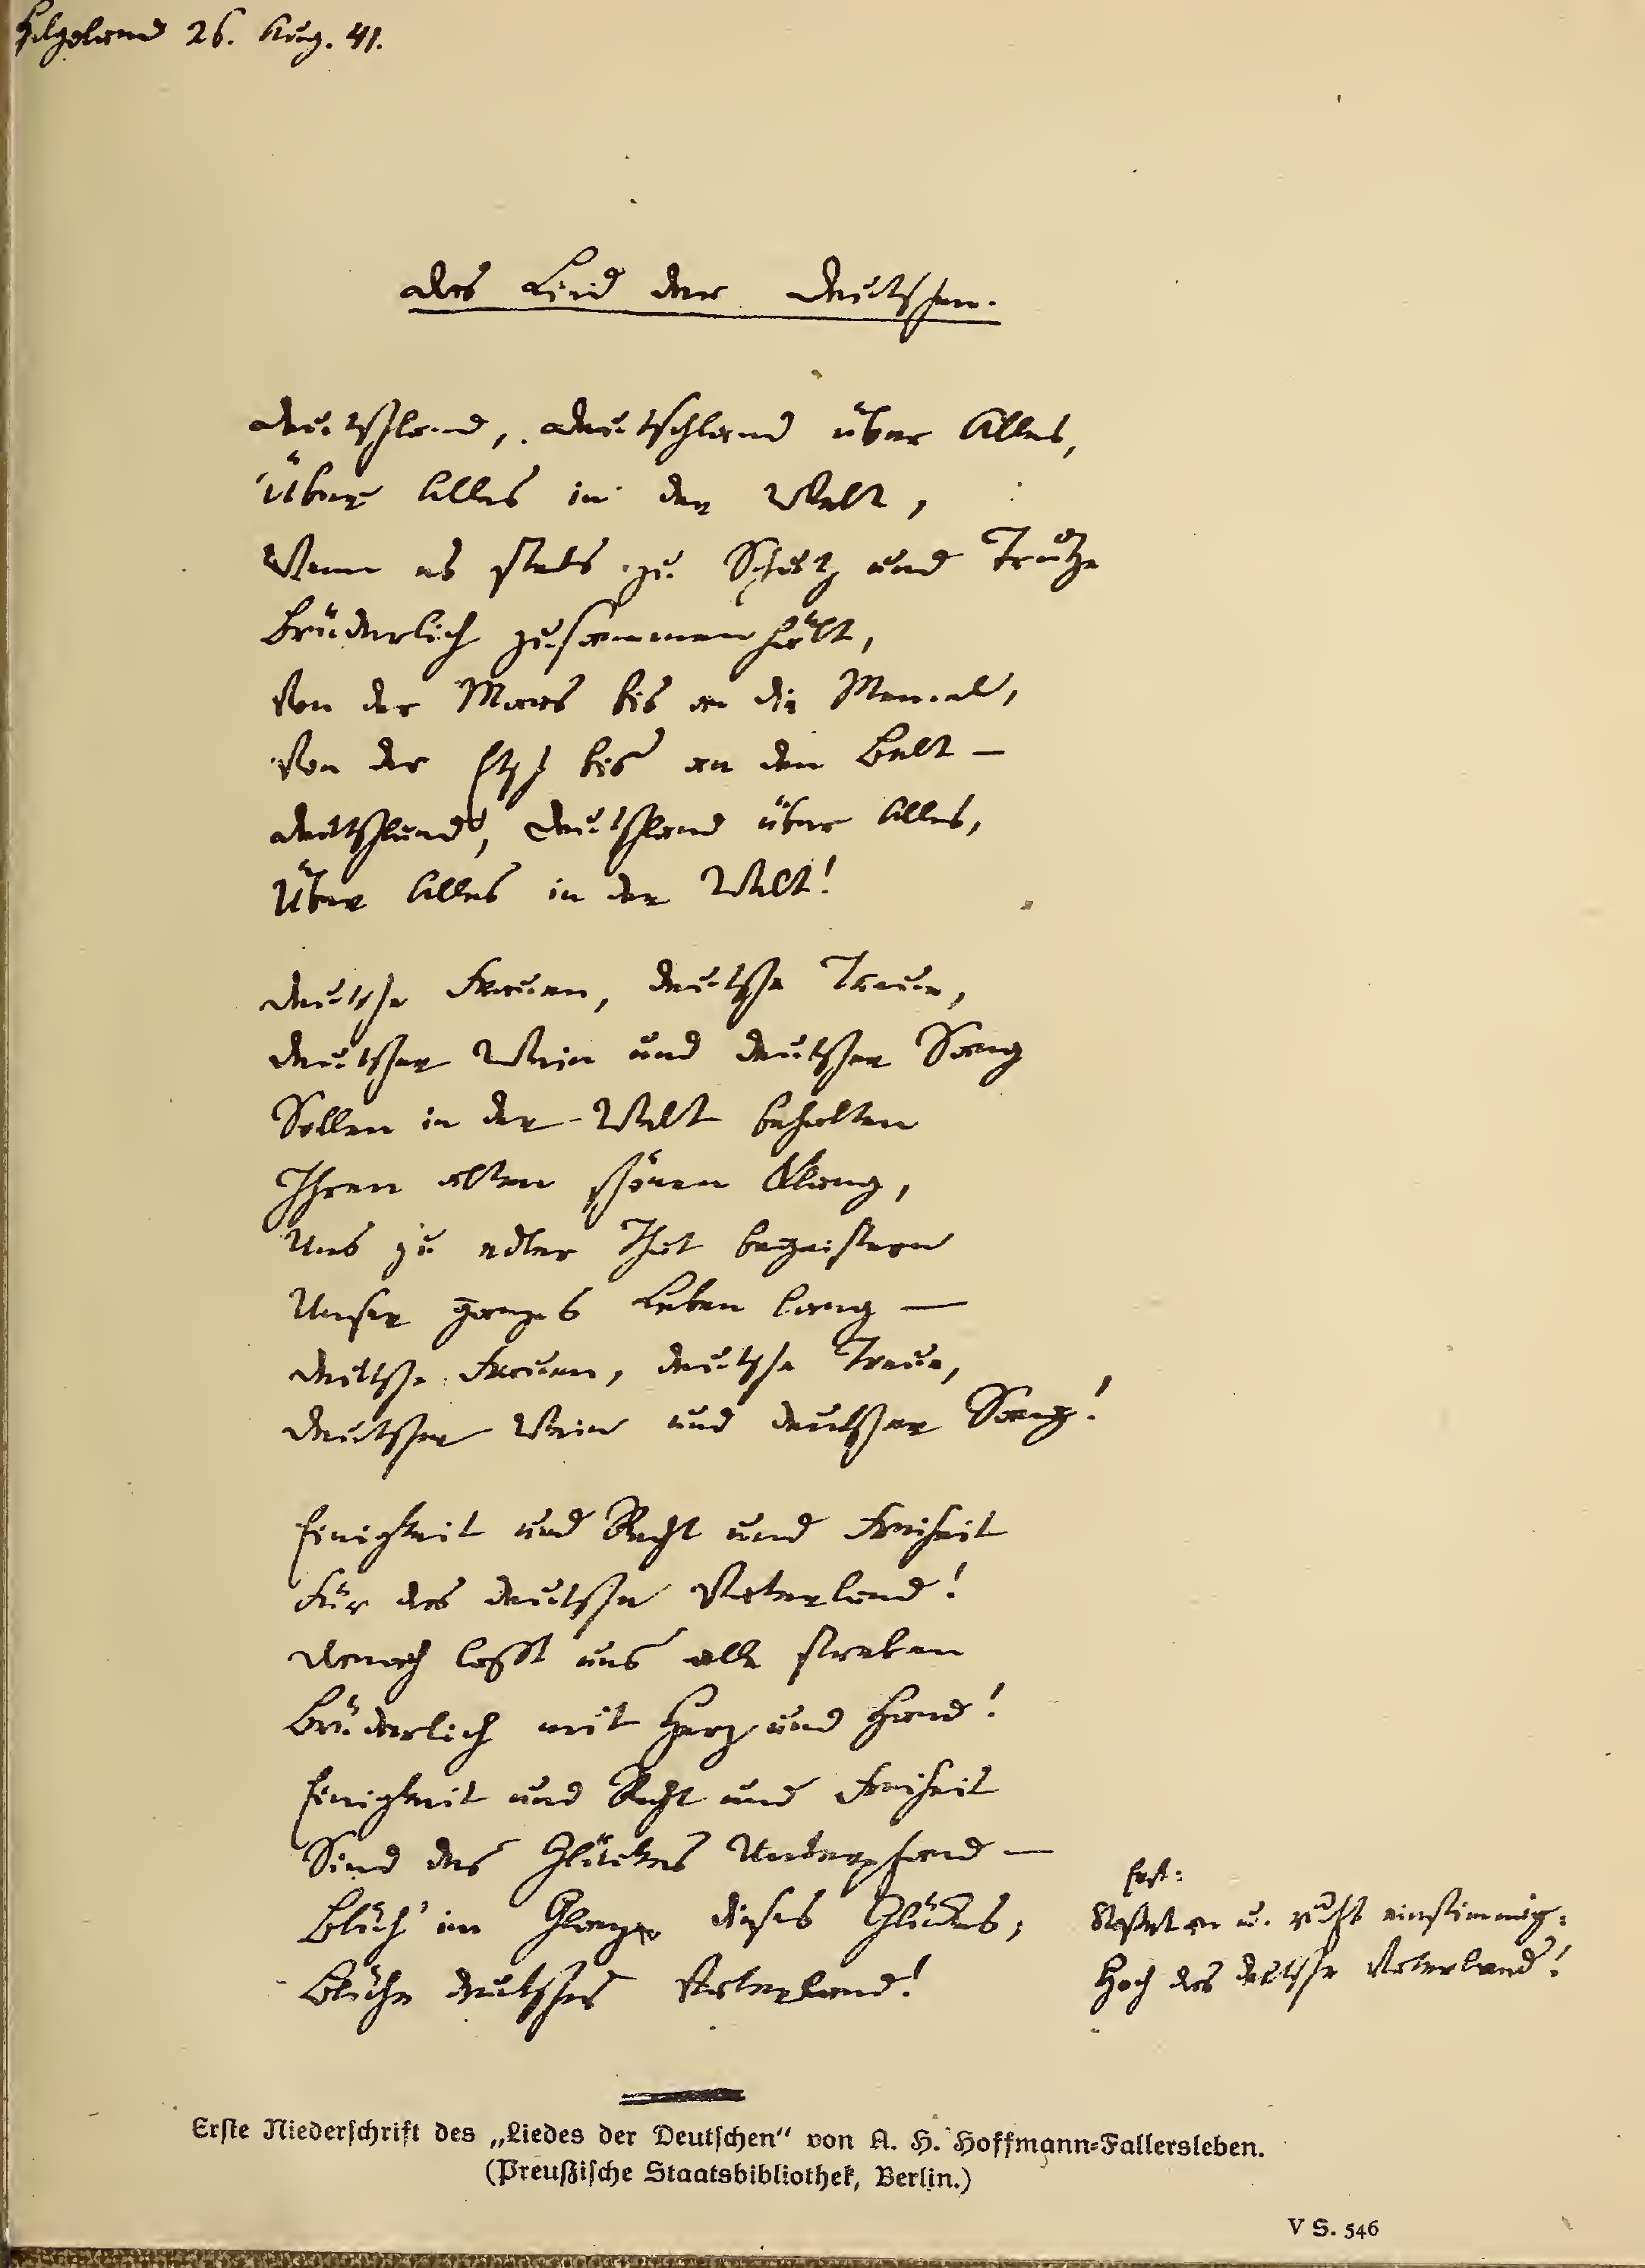 Helgoland 26. Aug. 41.
Das Lied der Deutschen.
Deutschland, Deutschland über Alles,
Über Alles in der Welt,
Wenn es stets zu Schutz und Trutze
Brüderlich zusammenhält,
Von der Maas bis an die Memel,
Von der Etsch bis an den Belt –
Deutschland, Deutschland über Alles,
Über Alles in der Welt!
Deutsche Frauen, deutsche Treue,
Deutscher Wein und deutscher Sang
Sollen in der Welt behalten
Ihren alten schönen Klang,
Uns zu edler That begeistern
Unser ganzes Leben lang –
Deutsche Frauen, deutsche Treue,
Deutscher Wein und deutscher Sang!
Einigkeit und Recht und Freiheit
Für das deutsche Vaterland!
Danach lasst uns alle streben
Brüderlich mit Herz und Hand!
Einigkeit und Recht und Freiheit
Sind des Glückes Unterpfand –
Blüh' im Glanze dieses Glückes,
Blühe deutsches Vaterland!
Erst:
Stoßet an u. ruft einstimmig:
Hoch das deutsche Vaterland!
Erste Niederschrift des „Liedes der Deutschen“ von A. H. Hoffmann-Fallersleben.
(Preußische Staatsbibliothek, Berlin.)
V S. 546